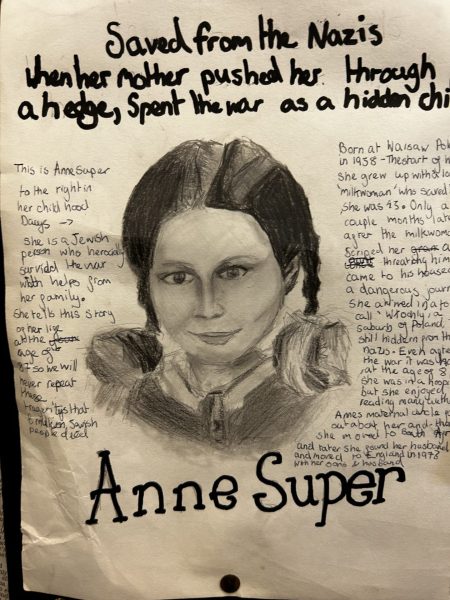 Saved from the Nazis
when her mother pushed her through
a hedge, Spent the war as a hidden chi
This is Anne Super
to the right in
her child hood
Days →
she is a Jewish
person who heroically
survided the war
with helps from
her family.
She tells this story
of her life
at the
age of
8+ so we will
never repeat
these
tragerity's that
6 million Jewish
people died
Born at Warsaw Pol
in 1938 - The start of h
she grew up with a lo
'milkwoman' who saved
She was 43. Only a
couple months late
after the milkwoma
her
threatning him
came to his house
a dangerous jour
She arrived in a to
call Wlochy, a
suburb of Poland
still hidden from the
nazis. Even after
the war it was h
at the age of 8
she was in a hospi
but she enjoyed
reading many
Annes maternal uncle
out about her and th
she moved to South Afr
and later she found her husband
and moved to England in 1978
with her sons & husband
Anne Super